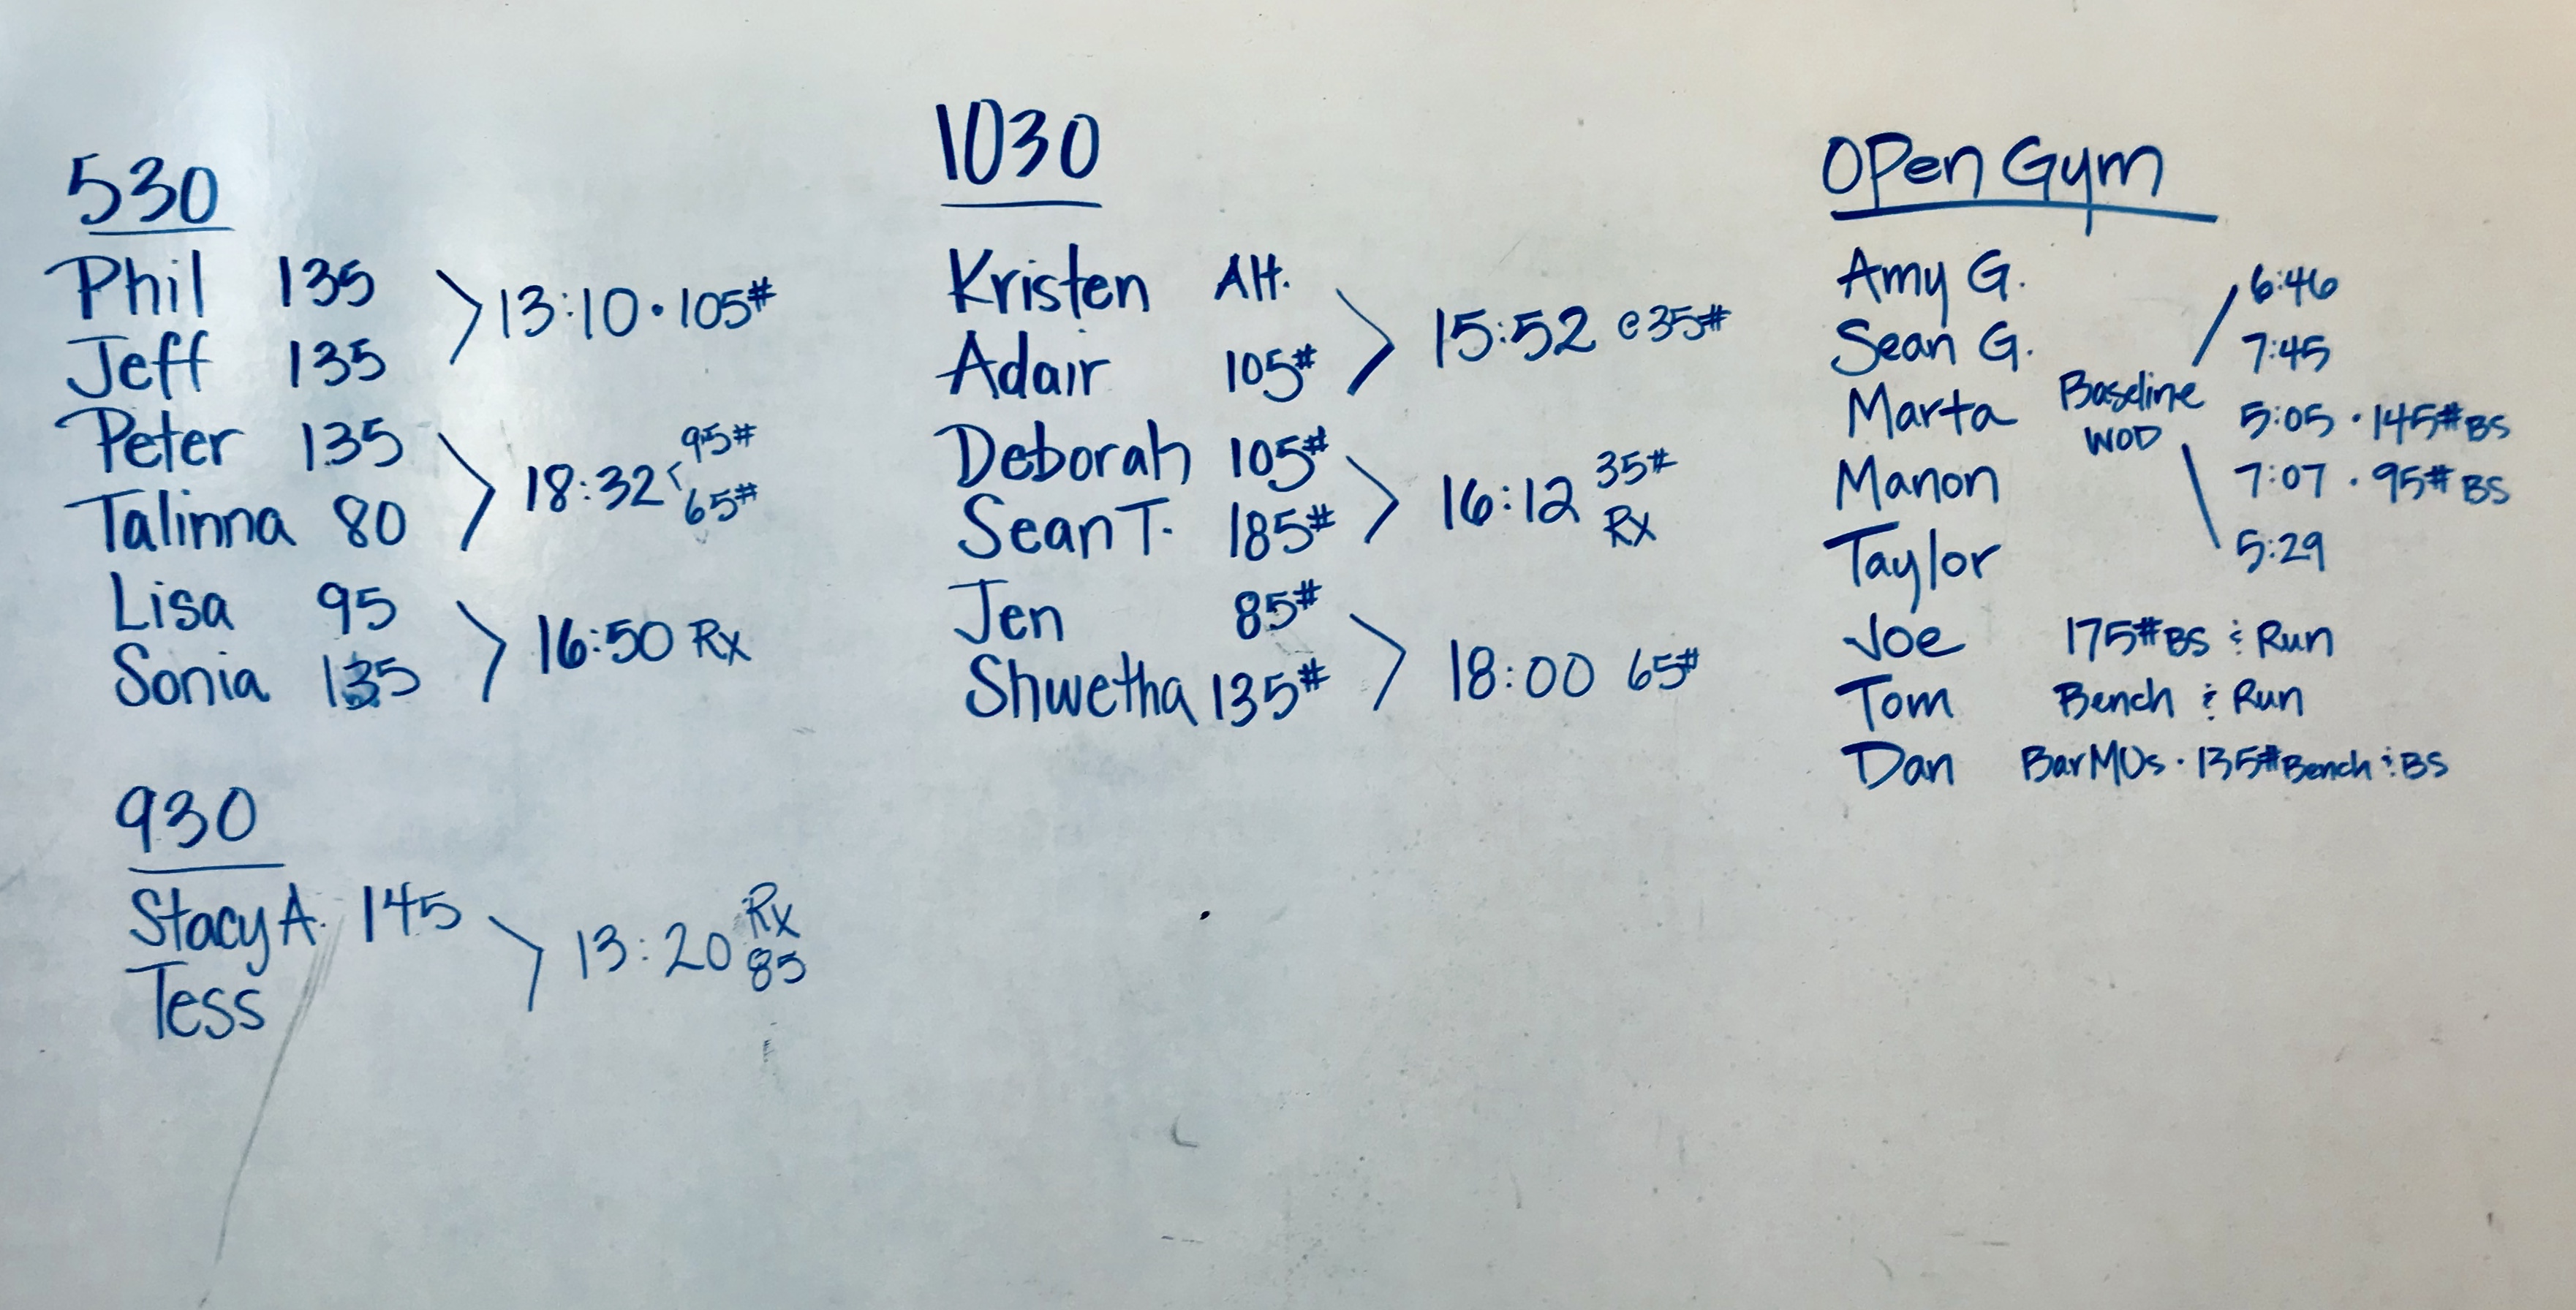 530
Phil 135
Jeff 135
13:10 · 105#
Peter 135
Talinna 80
18:32 95#
65#
Lisa 95
Sonia 135
16:50 Rx
930
Stacy A. 145
Tess
13:20 Rx
85
1030
Kristen Alt.
Adair 105#
15:52 @35#
Deborah 105#
Sean T. 185#
16:12 35#
Rx
Jen 85#
Shwetha 135#
18:00 65#
Open Gym
Amy G. 6:46
Sean G. 7:45
Marta 5:05 · 145# BS
Baseline
WOD
Manon 7:07 · 95# BS
Taylor 5:29
Joe 175# BS & Run
Tom Bench & Run
Dan Bar MUs · 135# Bench & BS